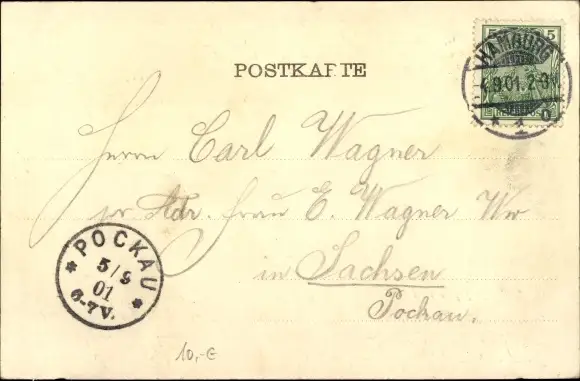 POSTKARTE
5 5
HAMBURG
4.9.01. 2-3N
* 1
Herrn Carl Wagner
pr Adr. Frau E. Wagner Ww
in Sachsen
Pockau.
* POCKAU *
5/9
01
6-7V.
10,-€